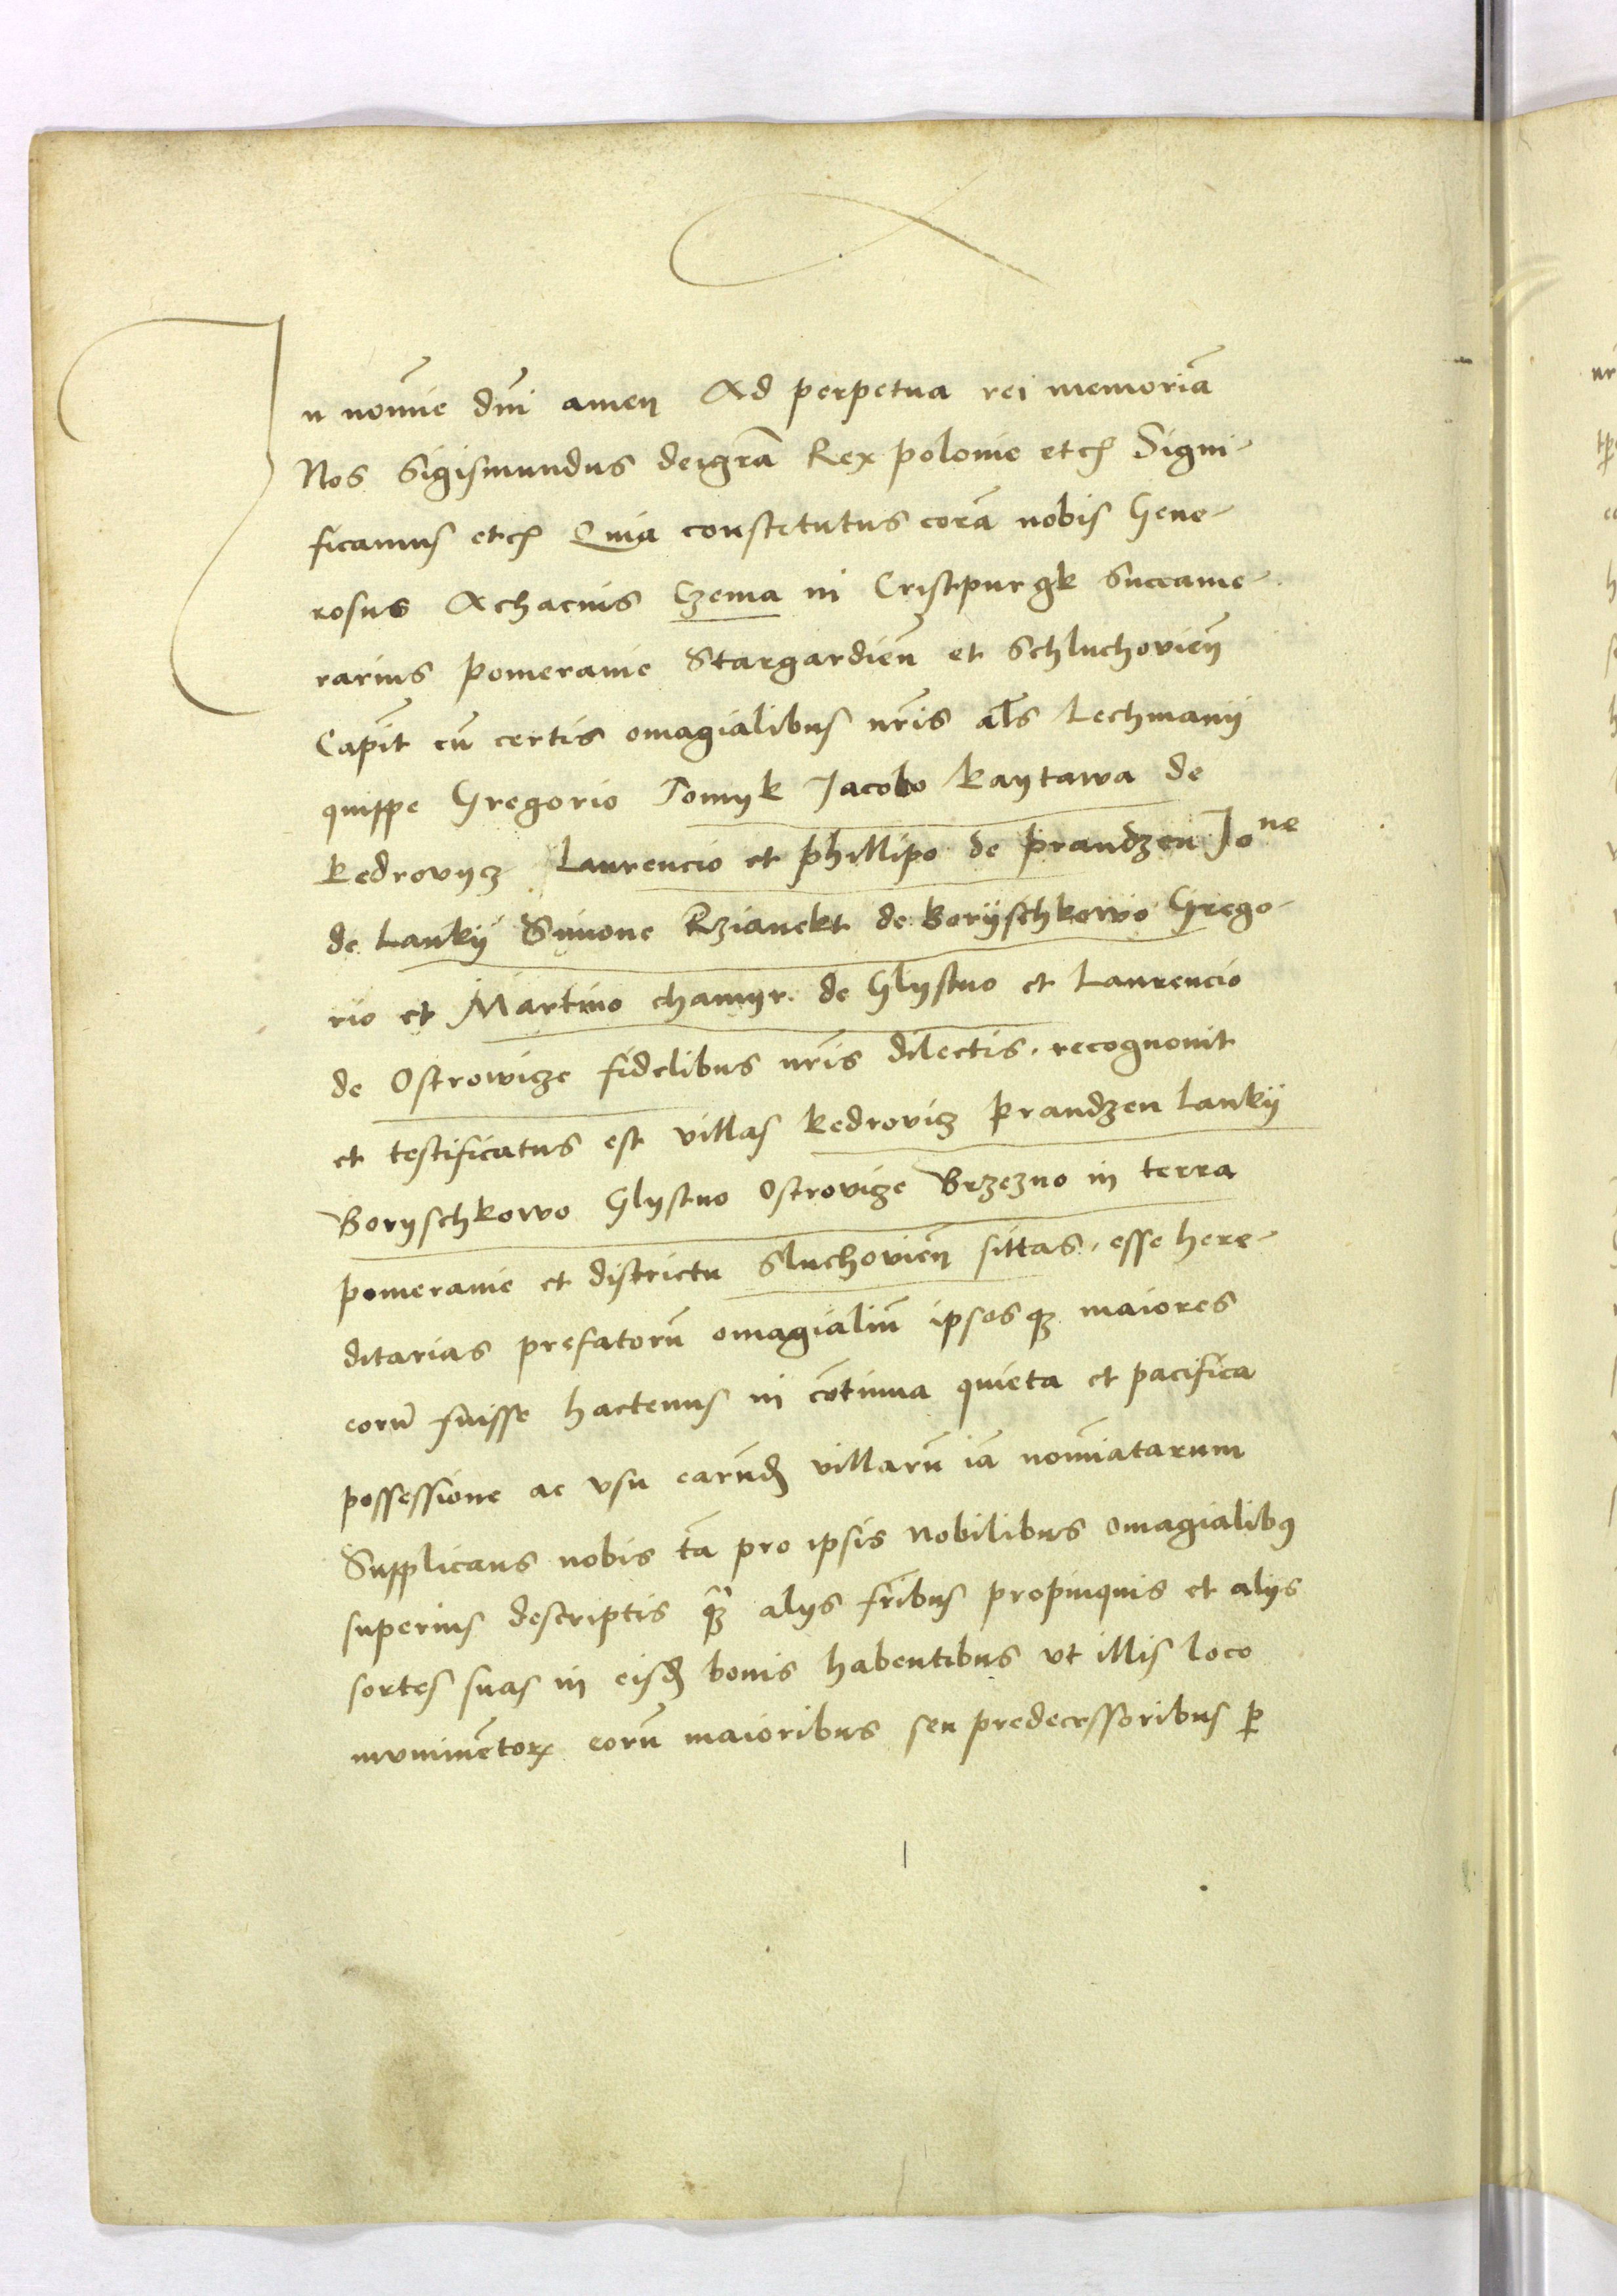 In nomīe dn̄i amen Ad perpetua rei memoriā
Nos Sigismundus dei gr̄a Rex polonie etc Signi-
ficamus etc Quia constitutus corā nobis Gene-
rosus Achacius Czema in Cristpurgk Succame-
rarius pomeranie Stargardien̄ et Schluchovien̄
Capit̄ cū certis omagialibus nr̄is al̄s Lechmanÿ
quippe Gregorio Tomyk Jacobo kaytawa de
kedrovycz Laurencio et phillipo de prandzen Joⁿᵉ
de Lankÿ Simone Rzianekt de Borÿschkowo Grego-
rio et Martino chamyr de Glystno et Laurencio
de Ostrowicze fidelibus nr̄is dilectis. recognouit
et testificatus est villas kedrovicz prandzen Lankÿ
Boryschkowo Glystno Ostrovicze Brzezno in terra
pomeranie et districtu Sluchovien̄ sittas, esse here-
ditarias prefatorū omagialiū ipsosqꝫ maiores
eorū fuisse hactenus in cōtinua quieta et pacifica
possessione ac vsu earūd villarū iā nomīatarum
Supplicans nobis tā pro ipsis nobilibus omagialibꝰ
superius descriptis qꝫ̄ alys fr̄ibus propinquis et alÿs
sortes suas in eisd bonis habentibus vt illis loco
munimētoꝝ eorū maioribus seu predecessoribus ꝑ